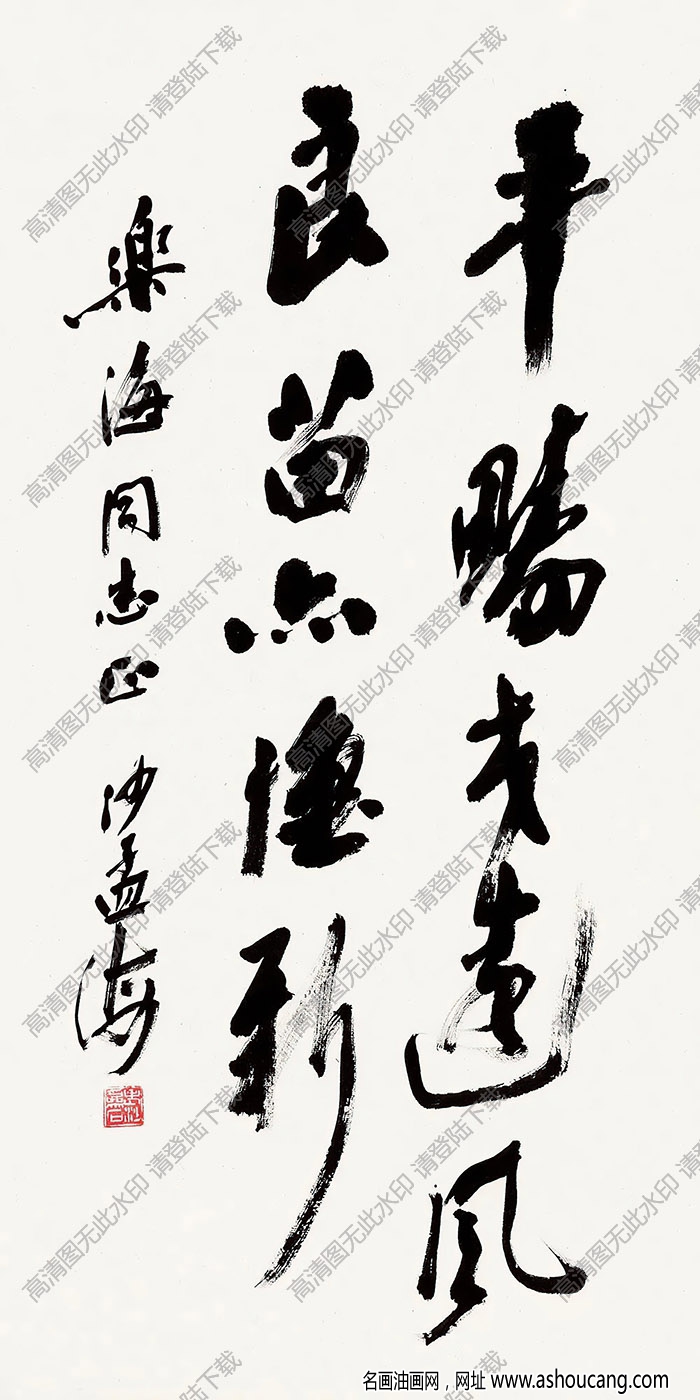 平疇交遠風
良苗亦懷新
樂海同志正 沙孟海
高清图无此水印 请登陆下载
名画油画网，网址 www.ashoucang.com